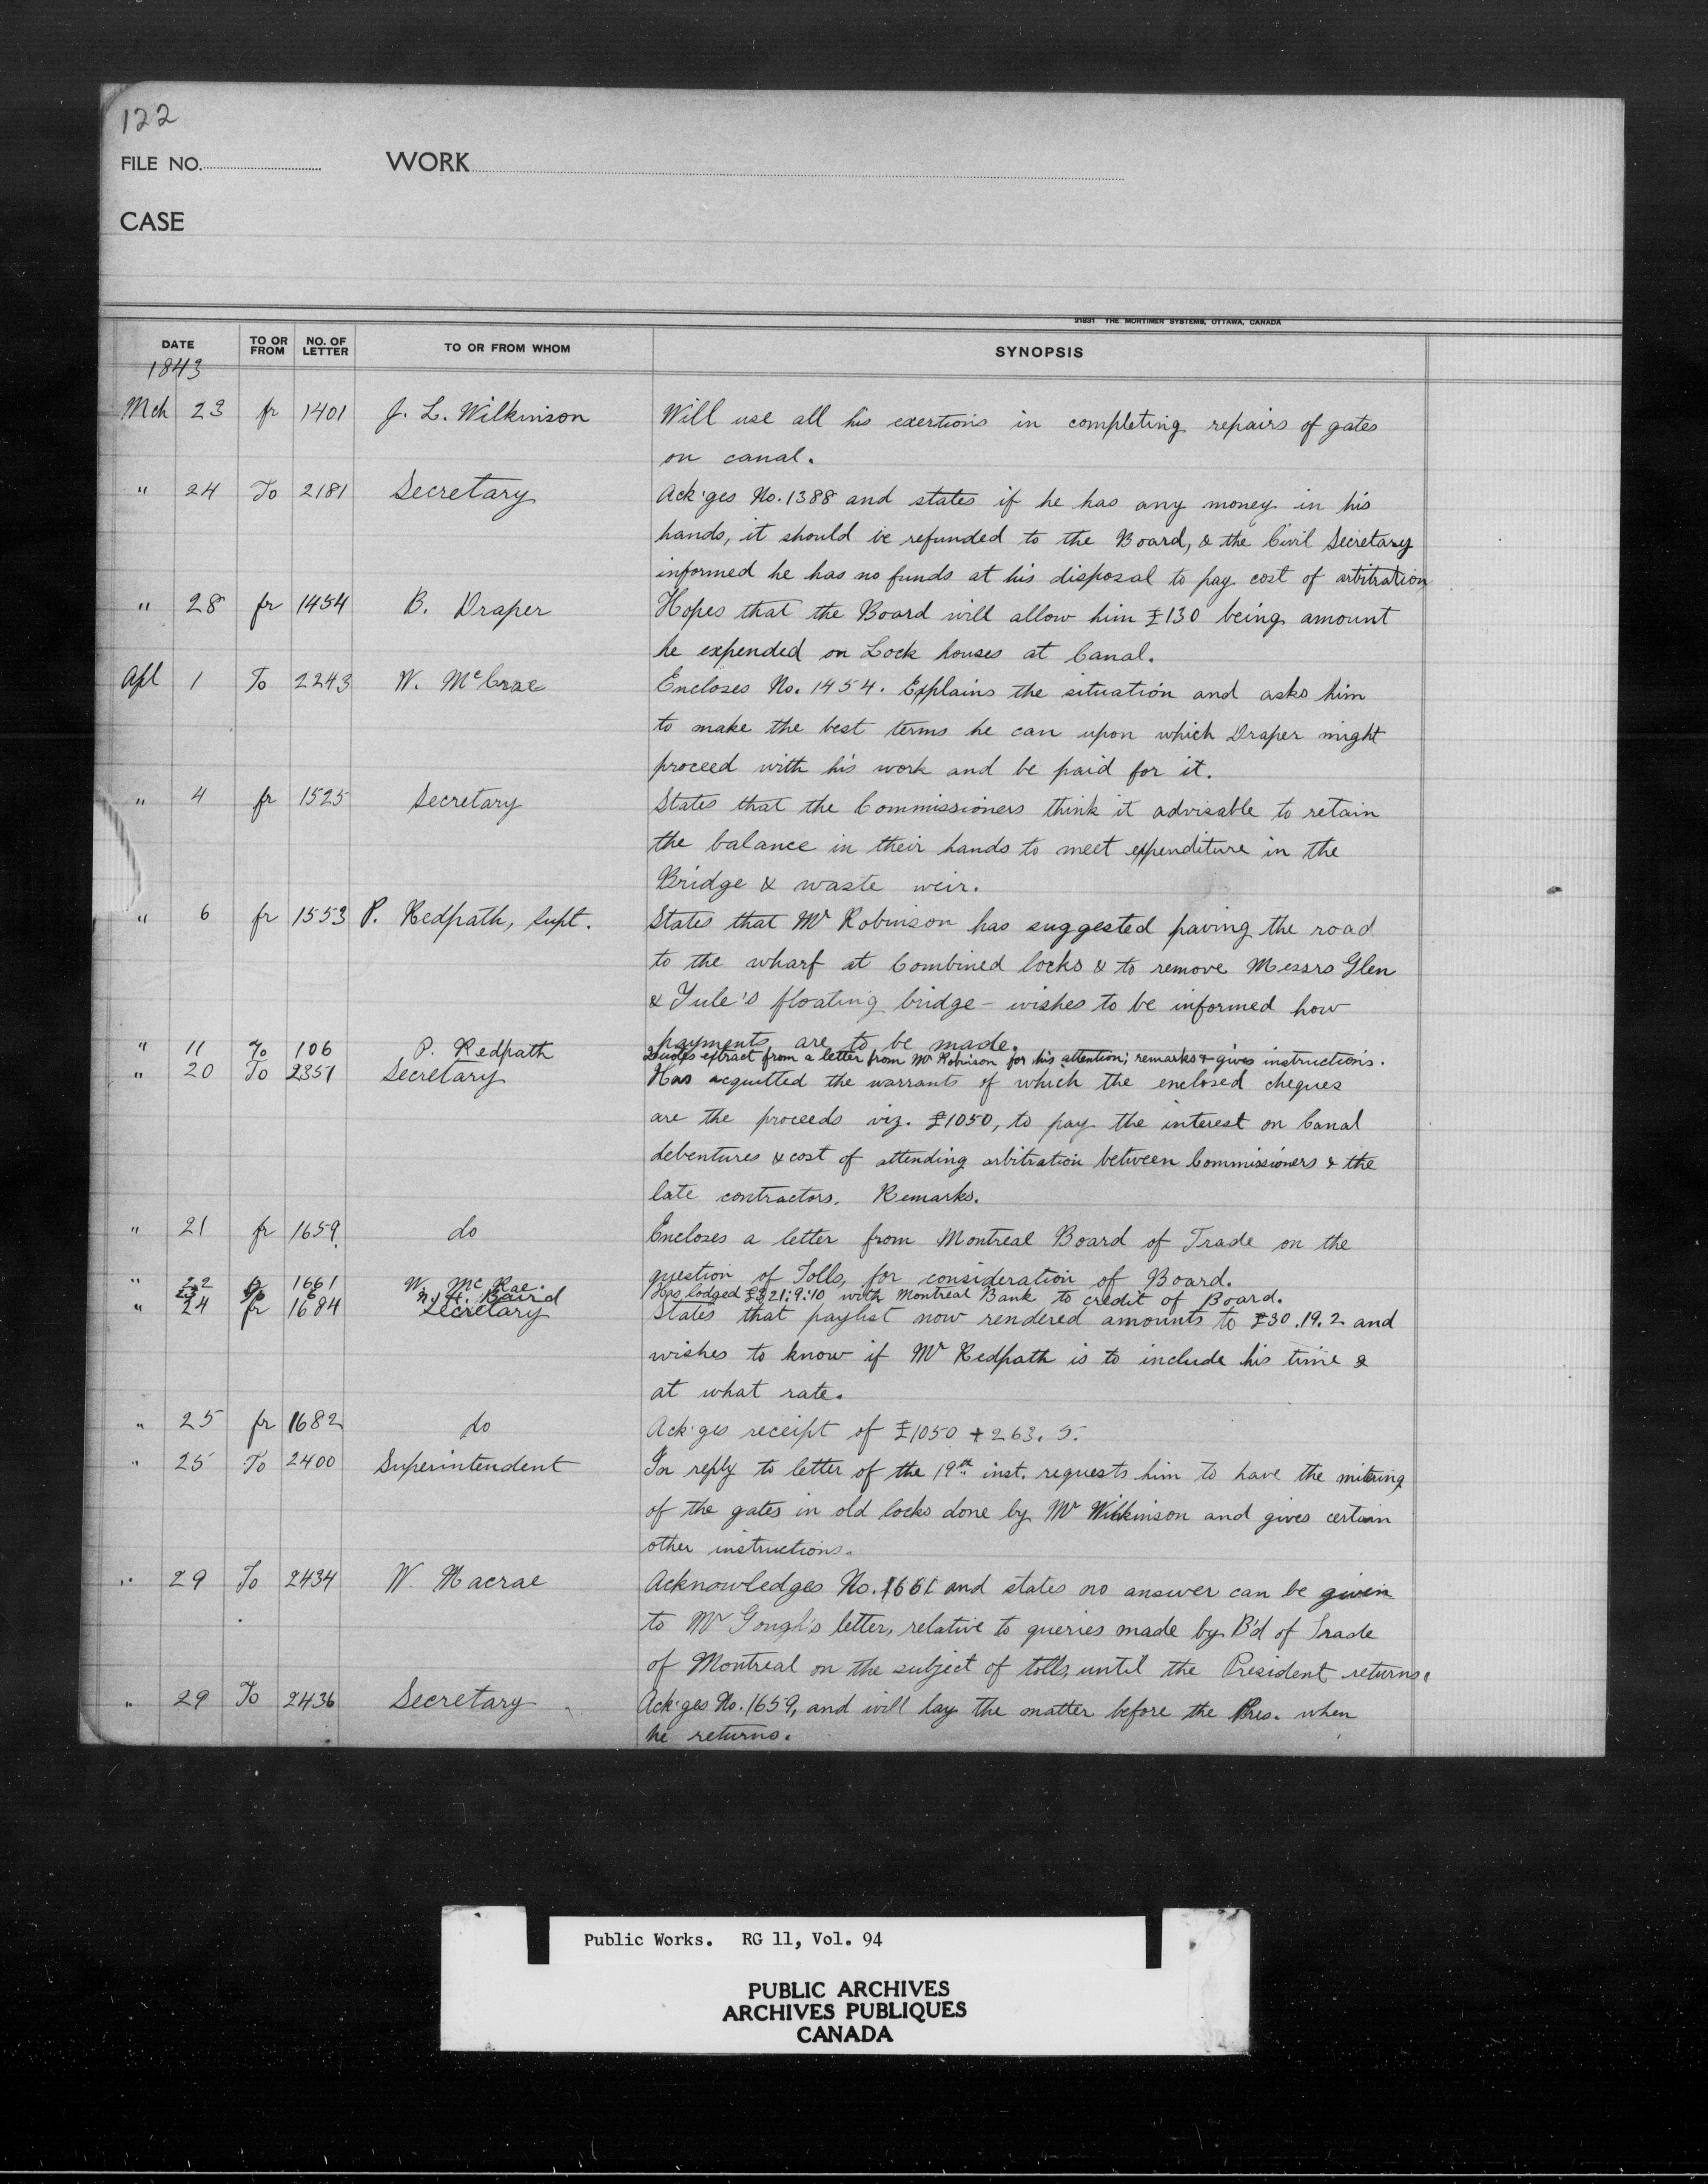 122
FILE NO. WORK
CASE
21831 THE MORTIMER SYSTEMS, OTTAWA, CANADA
DATE TO OR FROM NO. OF LETTER TO OR FROM WHOM SYNOPSIS
1843
Mch 23 fr 1401 J. L. Wilkinson Will use all his exertions in completing repairs of gates
on canal.
" 24 To 2181 Secretary Ack'ges No. 1388 and states if he has any money in his
hands, it should be refunded to the Board, & the Civil Secretary
informed he has no funds at his disposal to pay cost of arbitration
" 28 fr 1454 B. Draper Hopes that the Board will allow him £130 being amount
he expended on Lock houses at Canal.
Apl 1 To 2243 W. McCrae Encloses No. 1454. Explains the situation and asks him
to make the best terms he can upon which Draper might
proceed with his work and be paid for it.
" 4 fr 1525 Secretary States that the Commissioners think it advisable to retain
the balance in their hands to meet expenditure in the
Bridge & waste weir.
" 6 fr 1553 P. Redpath, Supt. States that Mr Robinson has suggested paving the road
to the wharf at Combined locks & to remove Messrs Glen
& Yule's floating bridge - wishes to be informed how
payments are to be made.
" 11 To 106 P. Redpath Quotes extract from a letter from Mr Robinson for his attention; remarks & gives instructions.
" 20 To 2351 Secretary Has acquitted the warrants of which the enclosed cheques
are the proceeds viz. £1050, to pay the interest on Canal
debentures & cost of attending arbitration between Commissioners & the
late contractors. Remarks.
" 21 fr 1659 do Encloses a letter from Montreal Board of Trade on the
question of Tolls, for consideration of Board.
" 22 fr 1661 W. McRae.
23 N. H. Baird Has lodged £321:9:10 with Montreal Bank to credit of Board.
" 24 fr 1684 Secretary States that paylist now rendered amounts to £30.19.2 and
wishes to know if Mr Redpath is to include his time &
at what rate.
" 25 fr 1682 do Ack'ges receipt of £1050 + 263. 5.
" 25 To 2400 Superintendent In reply to letter of the 19th inst. requests him to have the mitering
of the gates in old locks done by Mr Wilkinson and gives certain
other instructions.
" 29 To 2434 W. Macrae Acknowledges No. 1661 and states no answer can be given
to Mr Gough's letter, relative to queries made by B'd of Trade
of Montreal on the subject of tolls, until the President returns.
" 29 To 2436 Secretary Ack'ges No. 1659, and will lay the matter before the Pres. when
he returns.
Public Works. RG 11, Vol. 94
PUBLIC ARCHIVES
ARCHIVES PUBLIQUES
CANADA